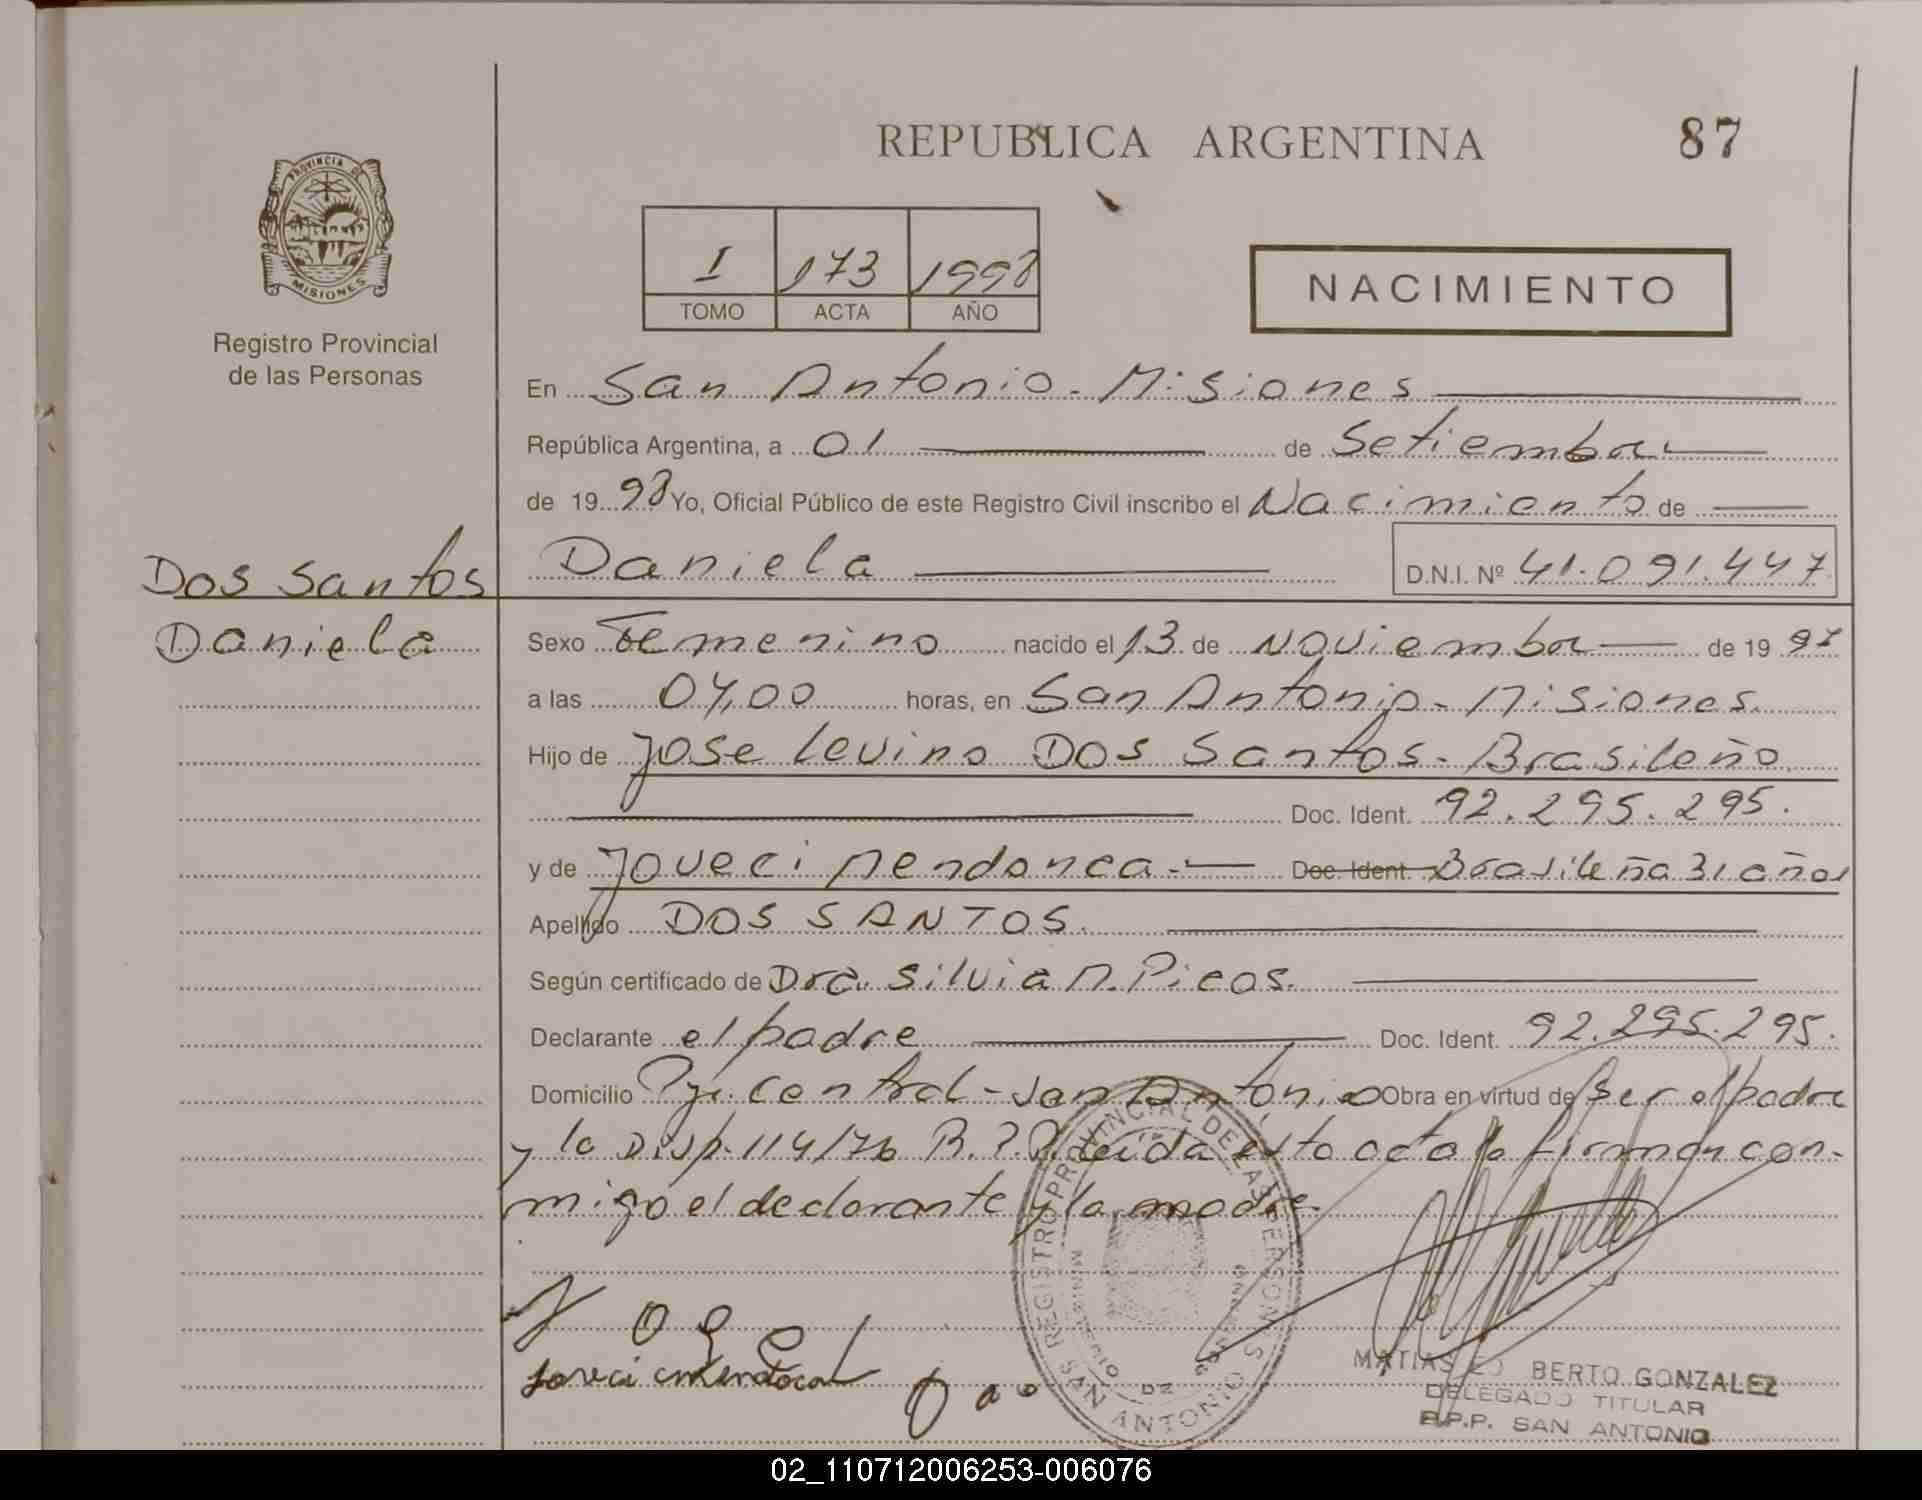 REPUBLICA ARGENTINA
87
PROVINCIA DE
MISIONES
Registro Provincial
de las Personas
I 173 1998
TOMO ACTA AÑO
NACIMIENTO
En San Antonio - Misiones
República Argentina, a 01 de Setiembre
de 1998 Yo, Oficial Público de este Registro Civil inscribo el Nacimiento de
Dos Santos
Daniela
Daniela D.N.I. Nº 41.091.447
Sexo Femenino nacido el 13 de Noviembre de 1997
a las 04,00 horas, en San Antonio - Misiones.
Hijo de Jose Levino Dos Santos - Brasileño
Doc. Ident. 92.295.295.
y de Joveci Mendonca - Doc. Ident. Brasileña 31 años
Apellido DOS SANTOS.
Según certificado de Dra. Silvia M. Picos.
Declarante el padre Doc. Ident 92.295.295.
Domicilio Pje. Central - San Antonio Obra en virtud de Ser el padre
y la Disp. 114/76 R.P.P. Leída esta acta la firman con-
migo el declarante y la madre.
REGISTRO PROVINCIAL DE LAS PERSONAS
SAN ANTONIO
MATIAS BERTO GONZALEZ
DELEGADO TITULAR
R.P.P. SAN ANTONIO
02_110712006253-006076